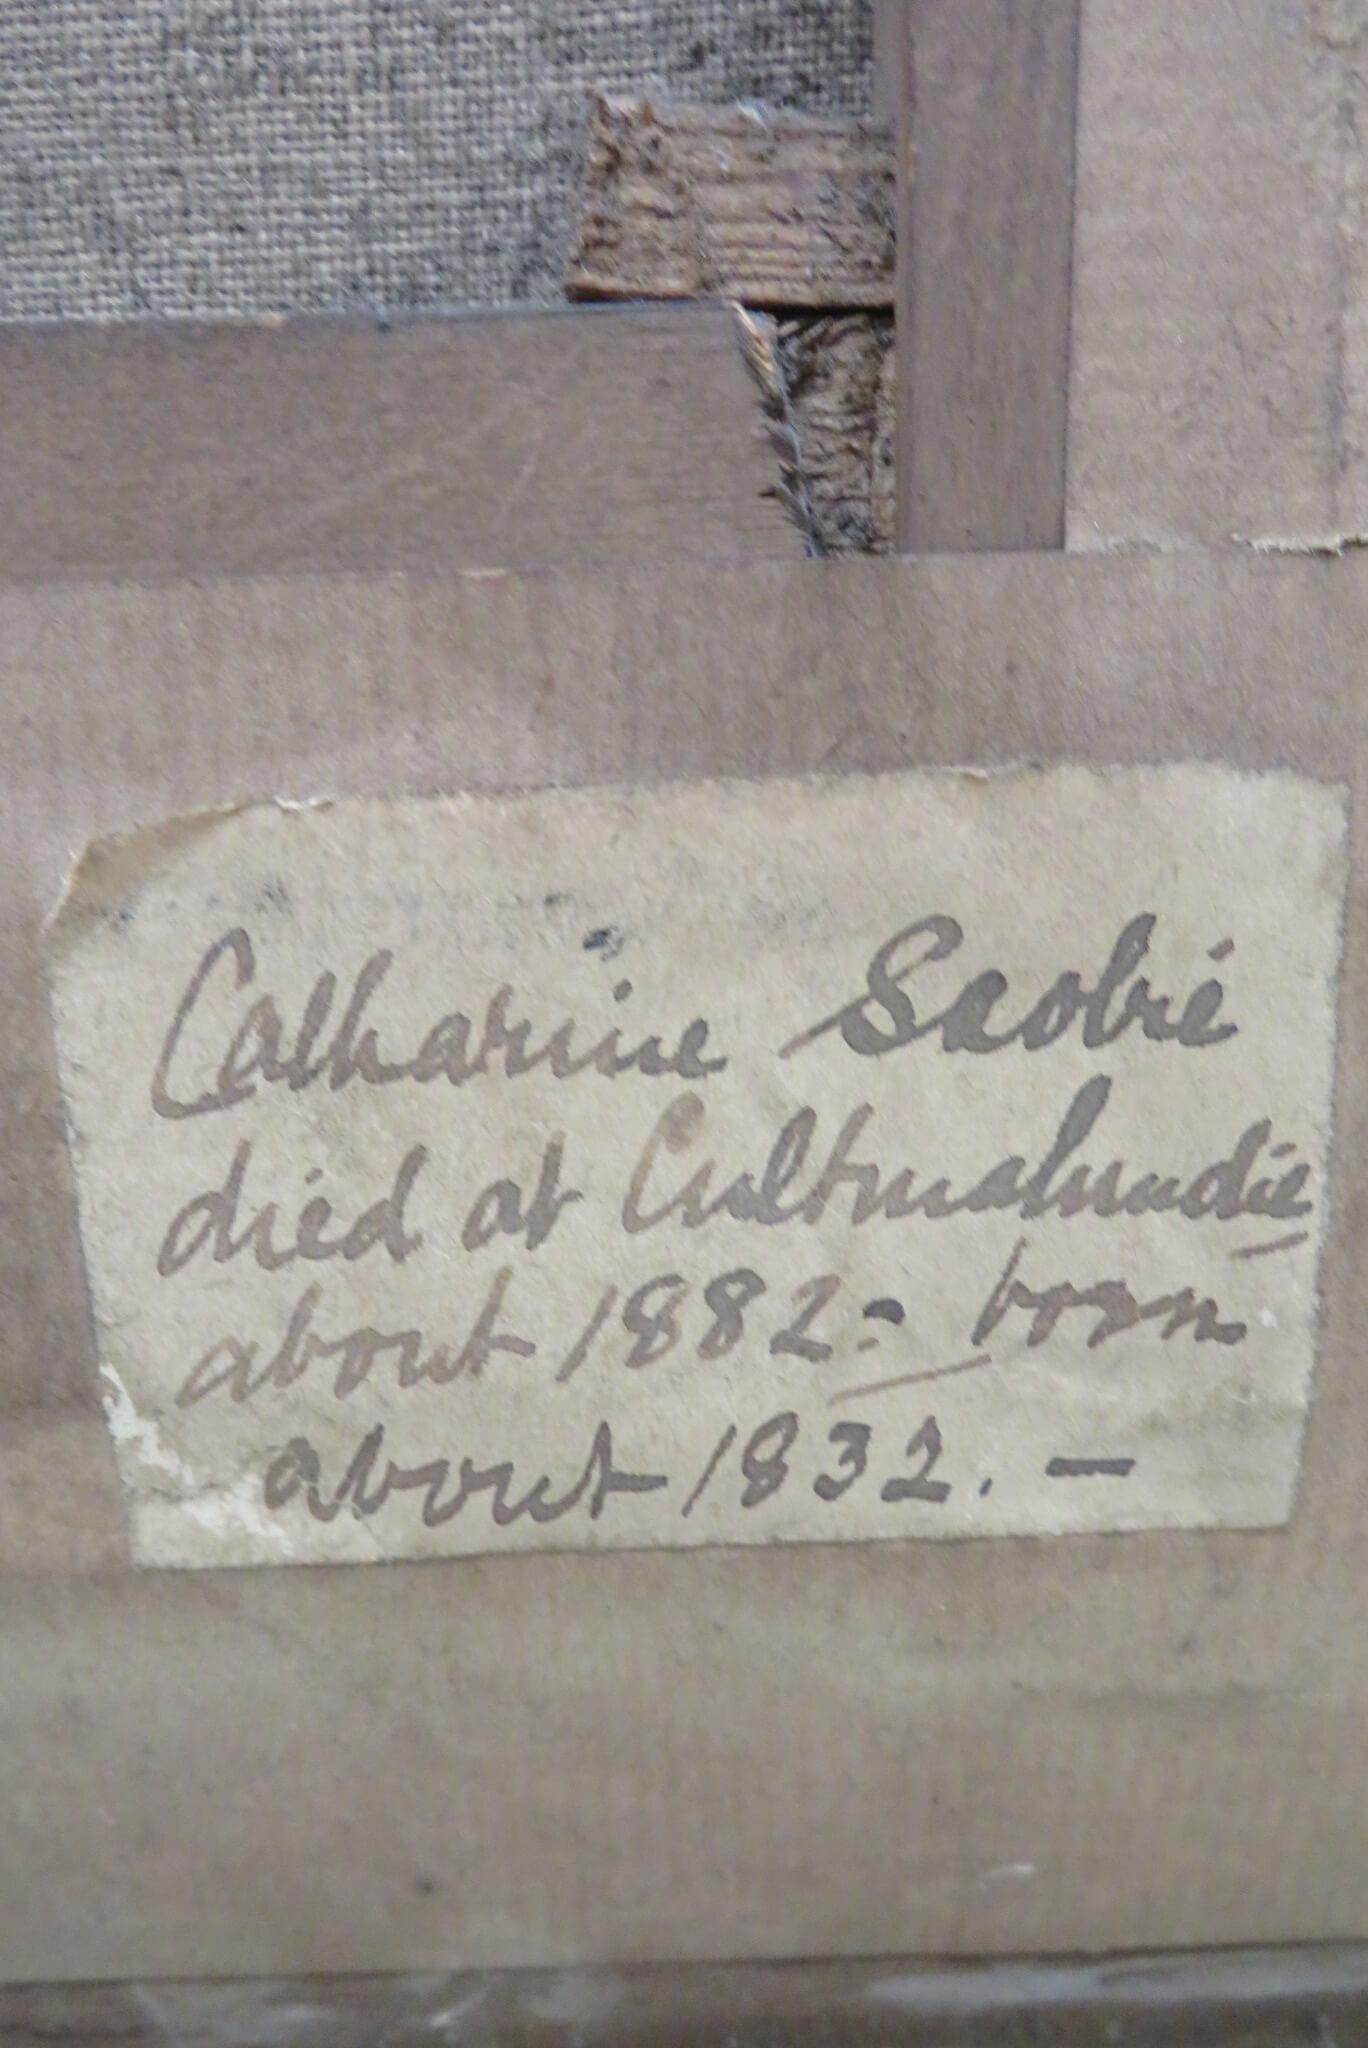 Catharine Scobie
died at Cultmalundie
about 1882 - born
about 1832. -